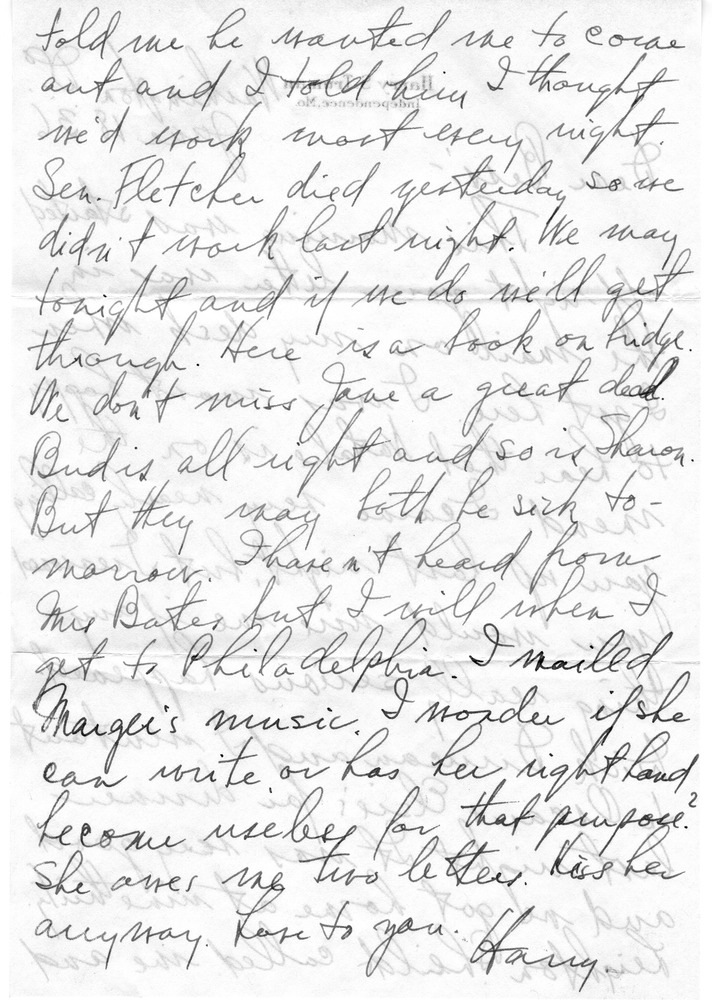 told me he wanted me to come
out and I told him I thought
we'd work most every night.
Sen. Fletcher died yesterday so we
didn't work last night. We may
tonight and if we do we'll get
through. Here is a book on bridge.
We don't miss Jane a great deal.
Bud is all right and so is Sharon.
But they may both be sick to-
morrow. I haven't heard from
Mrs Bates but I will when I
get to Philadelphia. I mailed
Margie's music. I wonder if she
can write or has her right hand
become useless for that purpose?
She owes me two letters. Kiss her
anyway. Love to you.
Harry.